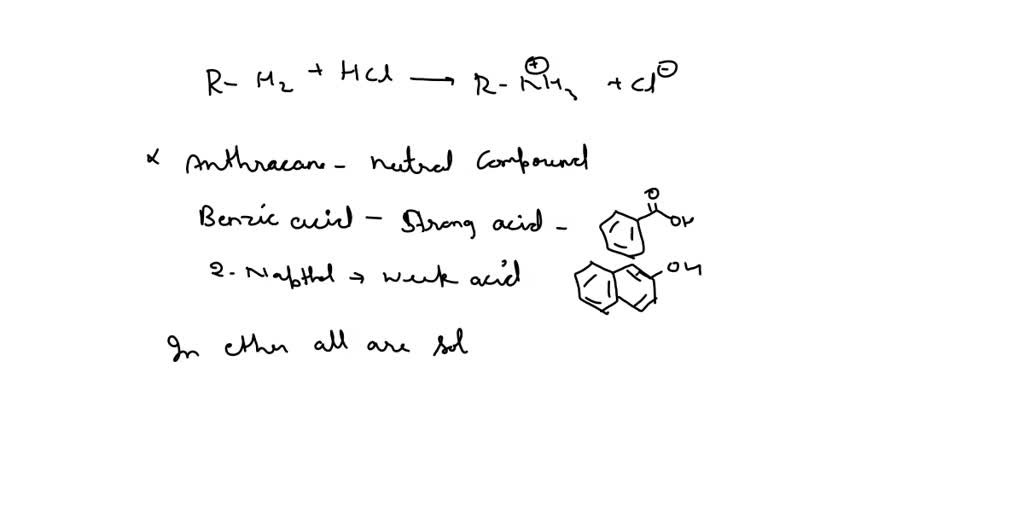 R- H₂ + HCl ⟶ R- N⊕H₃ + Cl⊖
* Anthracane - nutral Compound
Benzic acid - Strong acid - O OH
2- Napthol → weak acid OH
In ether all are sol